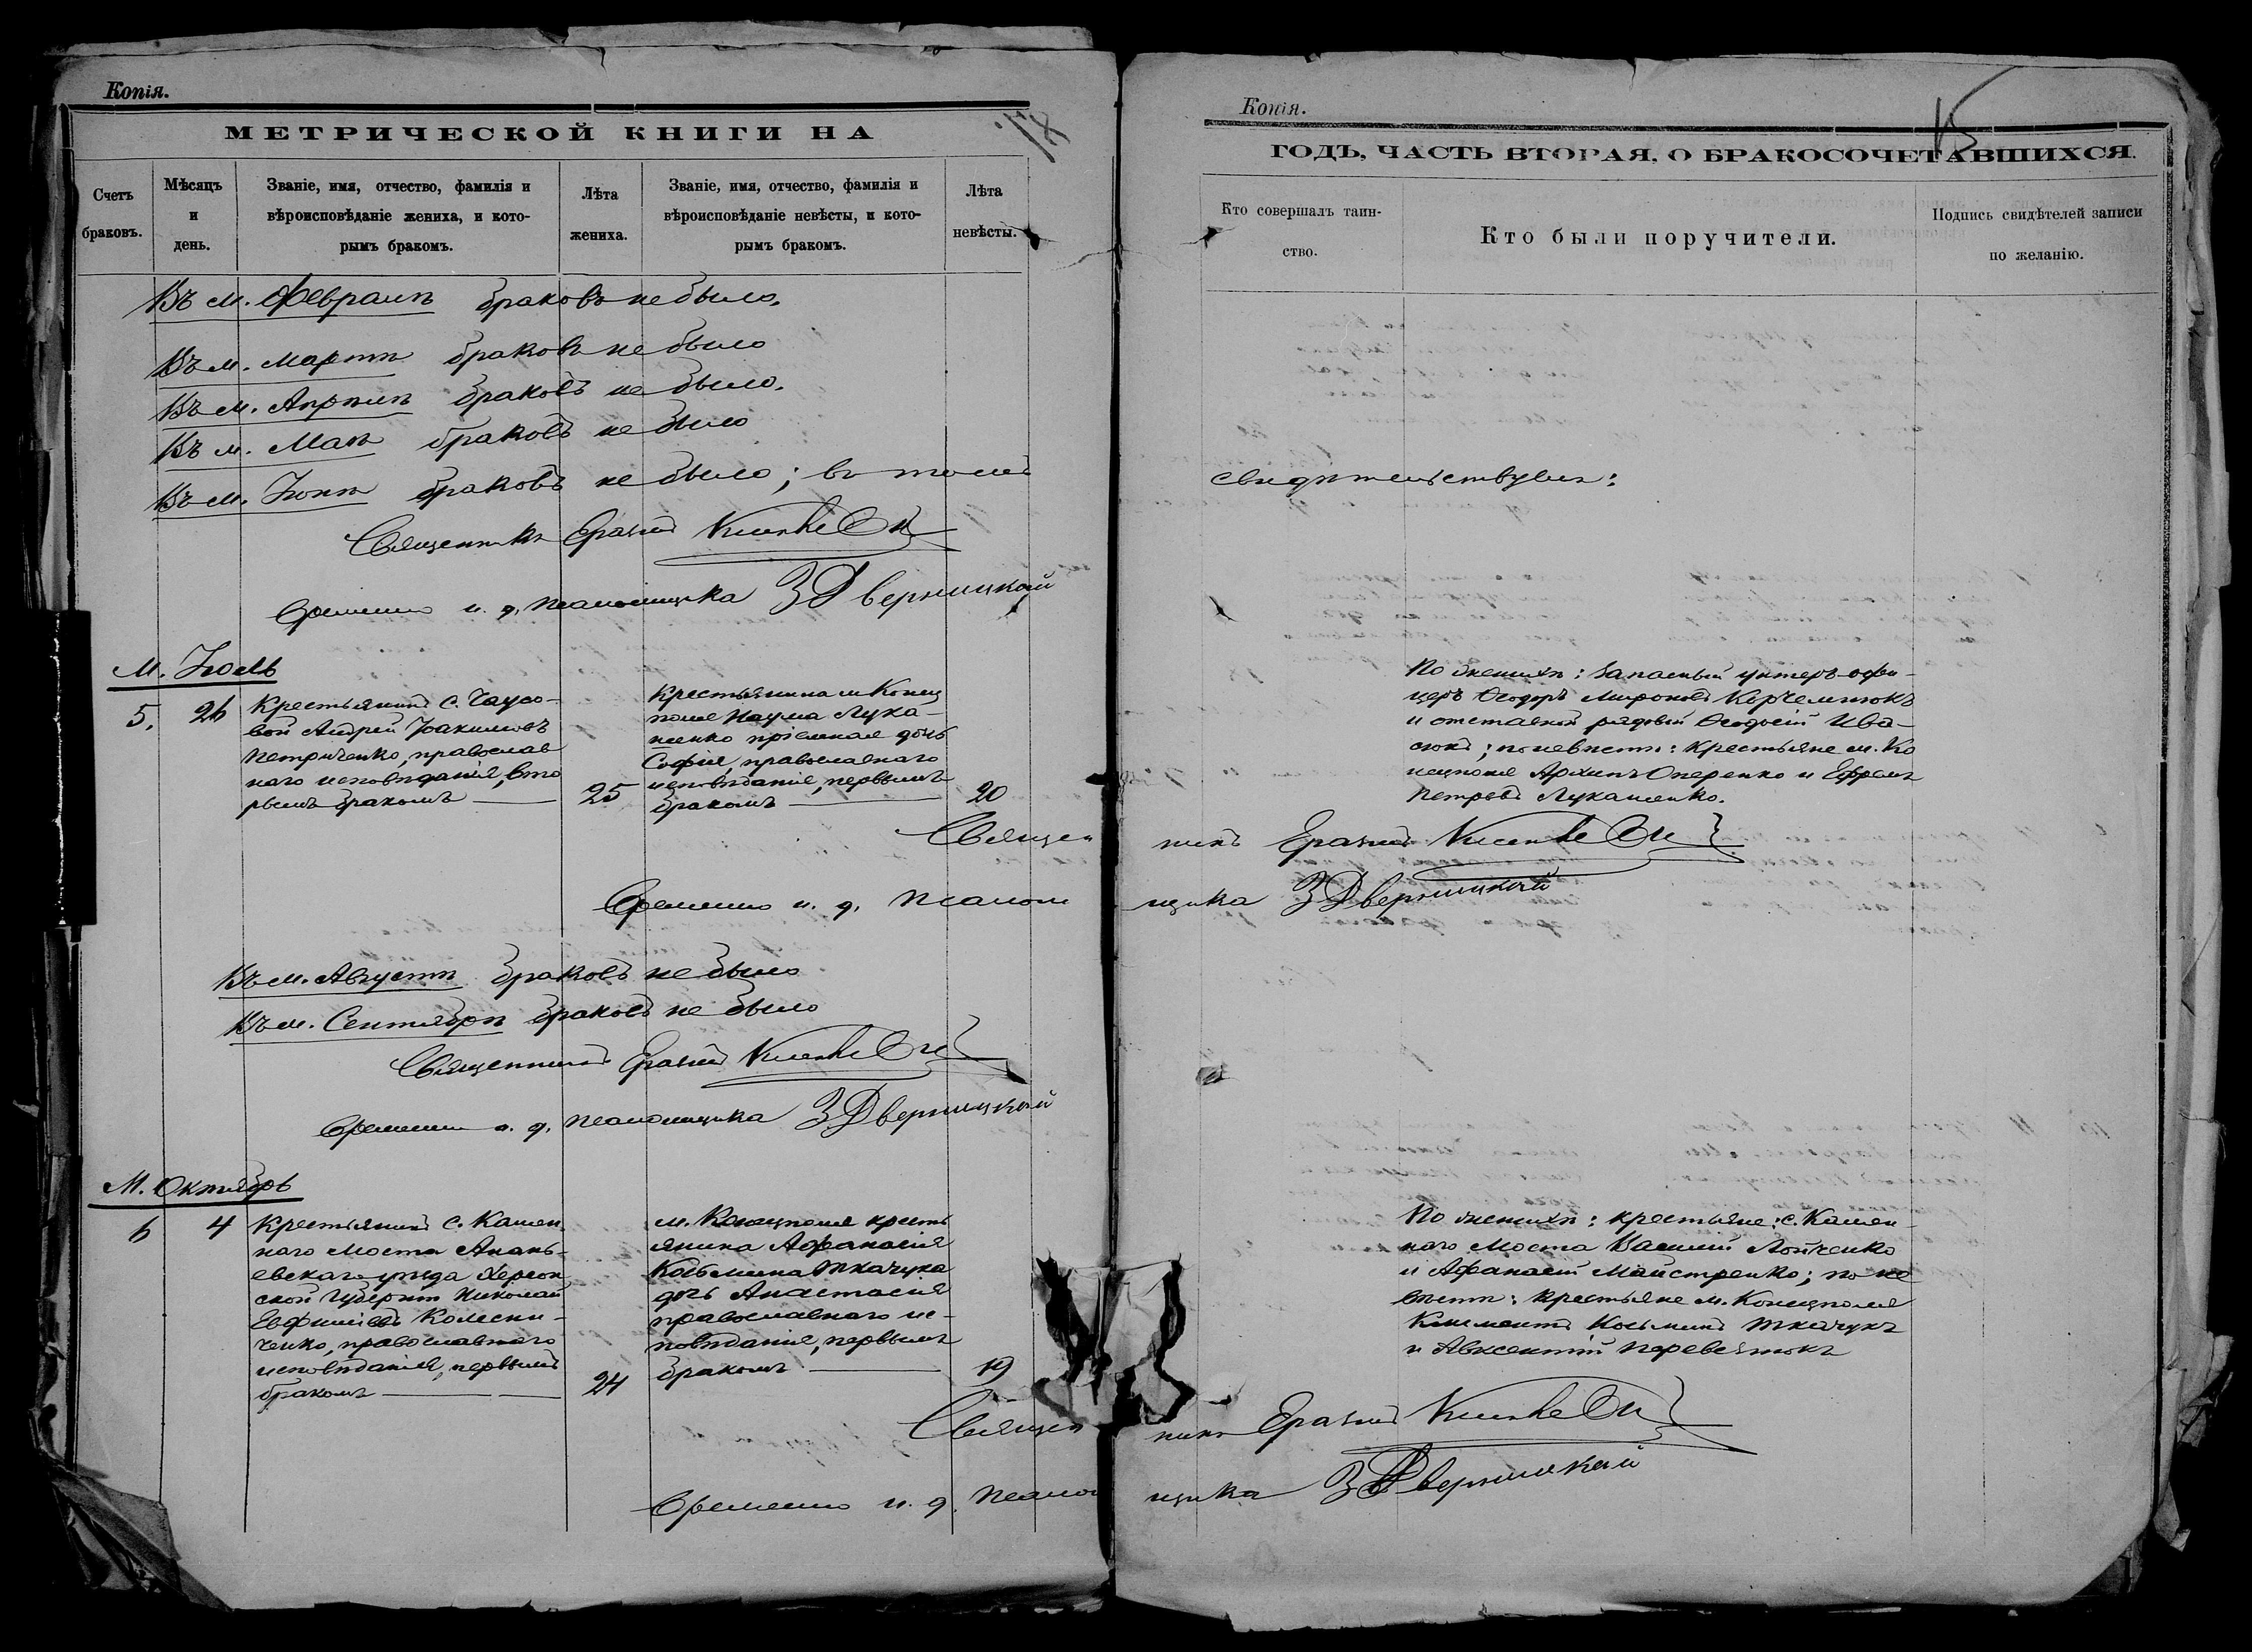 Копія.
МЕТРИЧЕСКОЙ КНИГИ НА
Счетъ браковъ.
Мѣсяцъ и день.
Званіе, имя, отчество, фамилія и
вѣроисповѣданіе жениха, и кото-
рымъ бракомъ.
Лѣта жениха.
Званіе, имя, отчество, фамилія и
вѣроисповѣданіе невѣсты, и кото-
рымъ бракомъ.
Лѣта невѣсты.
Въ м. Февралѣ браковъ не было.
Въ м. Мартѣ браковъ не было
Въ м. Апрѣлѣ браковъ не было.
Въ м. Маѣ браковъ не было
Въ м. Іюнѣ браковъ не было; въ томъ
Священникъ Еразмъ
Временно и. д. псаломщика З Дверницкій
М. Іюль
5. 26
Крестьянинъ с. Чаусо-
вой Андрей Іоакимовъ
Петриченко, православ
наго исповѣданія, вто
рымъ бракомъ
25
Крестьянина м Конец
поля Наума Лука-
шенко пріемная дочь
Софія, православнаго
исповѣданія, первымъ
бракомъ
20
Священ
Временно и. д. псалом
Въ м. Августѣ браковъ не было
Въ м. Сентябрѣ браковъ не было
Священникъ Еразмъ
Временно и. д. псаломщика З Дверницкій
М. Октябрь
6 4
Крестьянинъ с. Камен
наго Моста Анань-
евскаго уѣзда Херсон
ской Губерніи Николай
Евфиміевъ Колесни-
ченко, православнаго
исповѣданія, первымъ
бракомъ
24
м. Конецполя кресть
янина Афанасія
Косьмина Ткачука
дочь Анастасія
православнаго ис-
повѣданія, первымъ
бракомъ
19
Священ
Временно и. д. псалом
Копія.
15
ГОДЪ, ЧАСТЬ ВТОРАЯ, О БРАКОСОЧЕТАВШИХСЯ.
Кто совершалъ таин-
ство.
Кто были поручители.
Подпись свидѣтелей записи
по желанію.
свидѣтельствуемъ:
По женихѣ: запасный унтеръ-офи-
церъ Ѳеодоръ Мироновъ
и отставной рядовой Ѳеодосій Ива-
сюкъ; по невѣстѣ: крестьяне м. Ко
нецполя Архипъ Оперенко и Ефремъ
Петровъ Лукашенко.
никъ Еразмъ
щика З Дверницкій
По женихѣ: крестьяне: с. Камен-
наго Моста Василій Лойченко
и Афанасій Майстренко; по не
вѣстѣ: крестьяне м. Конецполя
Климентъ Косьминъ Ткачукъ
и Авксентій Перевезтюкъ
никъ Еразмъ
щика З Дверницкій